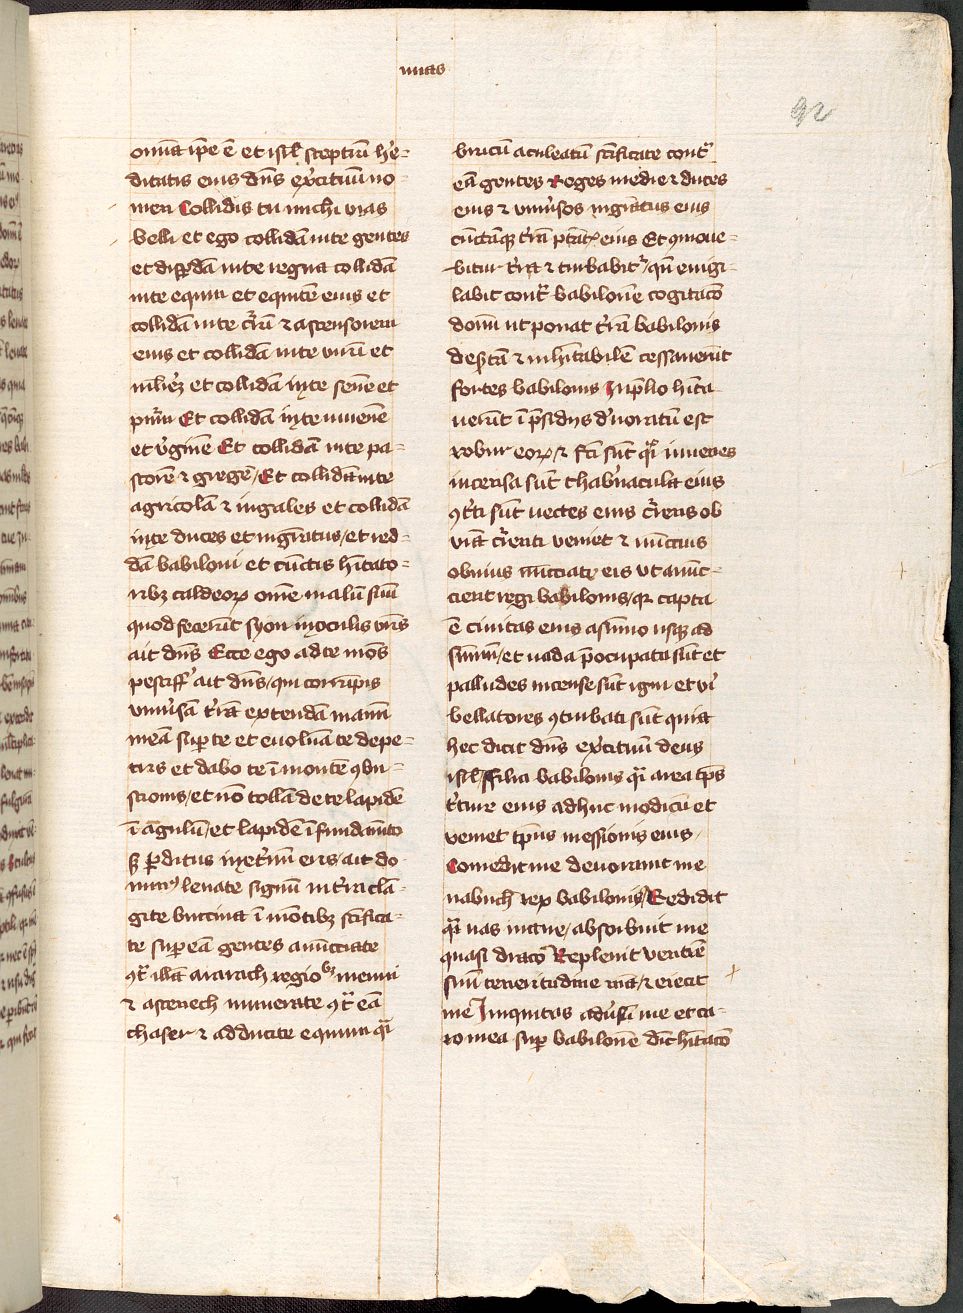 mias
92
omnia ip̅e e̅ et isrl̅ sceptru̅ he̅-
ditatis eius dn̅s exc̓ituu̅ no-
men Collidis tu michi vas
belli et ego collida̅ in te gentes
et disp̱da̅ in te regna collida̅
in te equu̅ et equite̅ eius et
collida̅ in te cr̅u̅ ⁊ ascensorem
eius et collida̅ in te viru̅ et
mlie̓ꝫ et collida̅ in te sene̅ et
pu̓m Et collida̅ in te iuuene̅
et v̓gine̅ Et collida̅ in te pa-
store̅ ⁊ grege̅ / Et collida̅ in te
agricola̅ ⁊ iugales et collida̅
in te duces et mg̅ratus / et red-
da̅ babiloni et cu̅ctis hi̅tato-
ribꝫ caldeoꝝ om̅e malu̅ suu̅
quod fecer̅t syon in oculis vr̅is
ait dn̅s Ecce ego ad te mo̅s
pestiff̓ ait dn̅s / qui corru̅pis
vniu̓sa̅ t̓ra̅ extenda̅ manu̅
mea̅ sup̱ te et euolua̅ te de pe-
tris et dabo te i̅ monte̅ ꝯbu-
stionis / et no̅ tolla̅ de te lapide̅
i̅ a̅gulu̅ / et lapide̅ i̅ fundam̅to
sꝫ p̱ditus in et̓nu̅ eris / ait do-
minꝰ leuate signu̅ in t̓ra cla̅-
gite buccina i̅ mo̅tibꝫ sc̅ifica-
te sup̱ ea̅ gentes anu̅cciate
ꝯt̓ illa̅ ararach regiobꝫ menni
⁊ ascenech nu̅merate ꝯt̓ ea̅
thaser ⁊ adducite equum qi̓
bricu̅ aculeatu̅ sc̅ificate cont̓
ea̅ gentes Reges medie ⁊ duces
eius ⁊ vniu̓sos mg̅ratus eius
cu̅cta̅qꝫ t̓ra̅ p̅tat̅ꝭ eius Et ꝯmoue-
bitur t̓ra ⁊ turbabit̓ / qn̅ euigi-
labit cont̓ babilone̅ cogitac̅o
domi̅ ut ponat t̓ra̅ babilonis
des̓ta̅ ⁊ inhi̅tabile̅ cessaueru̅t
fortes babilonis In p̅lio hi̅ta
ueru̅t i̅ p̅sidijs d̓uoratu̅ est
robur eoꝝ / ⁊ fc̅i su̅t qi̓ mulieres
incensa su̅t thab̓nacula eius
ꝯt̓ti su̅t uectes eius cu̓rens ob
uia̅ cu̓renti veniet ⁊ nu̅ccius
obuius nu̅cciati̅ eis vt anu̅c-
cient regi babilonis / qꝛ capta
e̅ ciuitas eius a su̅mo usqꝫ ad
su̅mu̅ / et uada p̅ocupata su̅t et
palludes incense su̅t igni et vi̓
bellatores ꝯturbati su̅t quia
hec dicit dn̅s exc̓ituu̅ deus
isrl̅ / ffilia babilonis qi̓ area tp̅s
t̓ture eius adhuc modicu̅ et
veniet tp̅us messionis eius /
Comedit me deuorauit me
nabuch̅ rex babilonis / Reddidit
qi̓ uas inane / absorbuit me
quasi draco̅ Repleuit ventre̅
suu̅ teneritudine mea̅ / ⁊ eiecit
me Iniquitas adu̓su̅ me et ca-
ro mea sup̱ babilone̅ dic̅ hi̅tac̅o